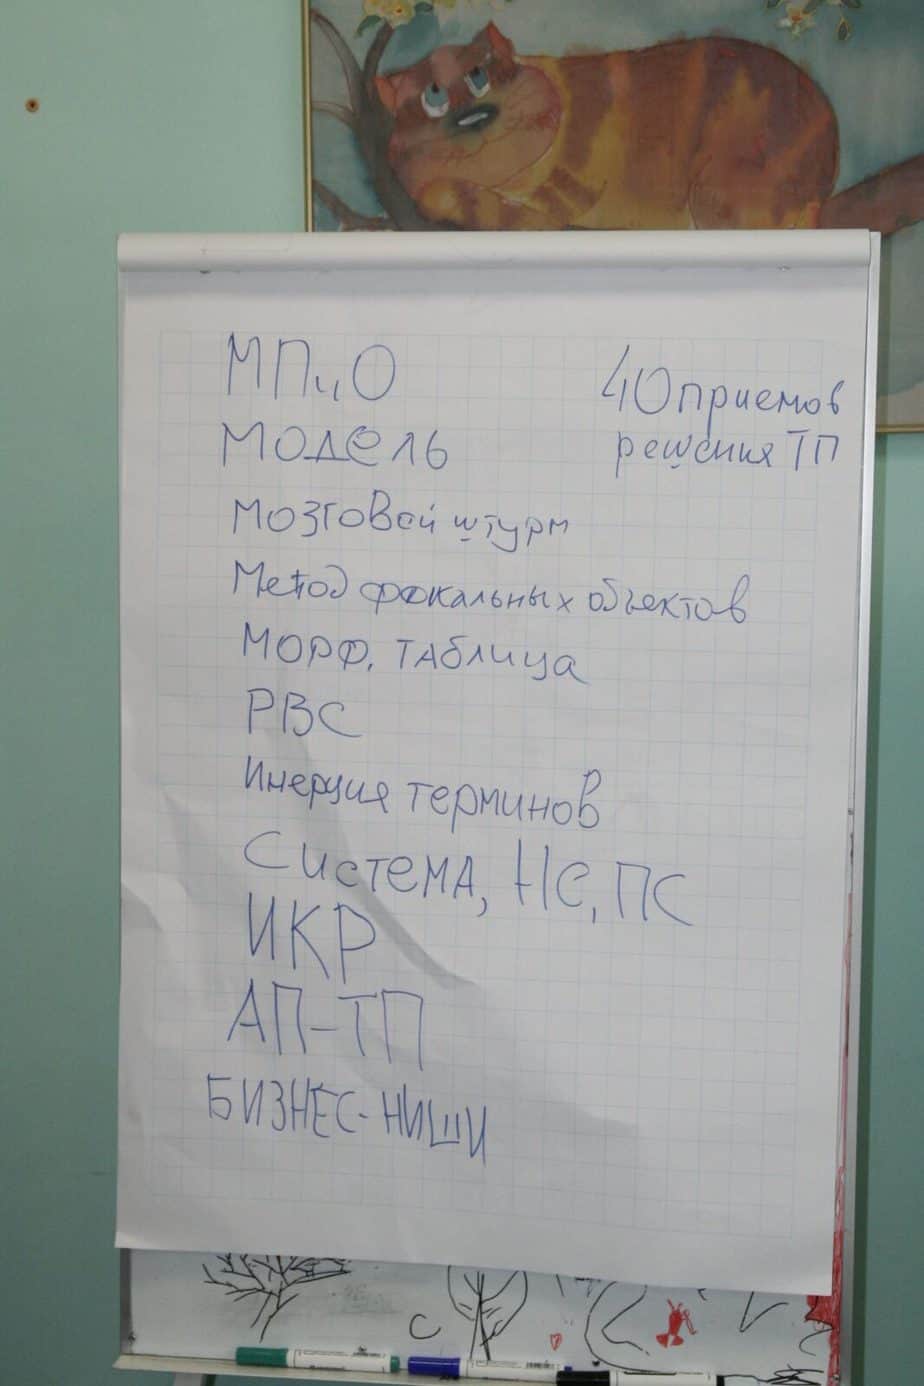 МПиО
МОДЕЛЬ
Мозговой штурм
Метод фокальных объектов
МОРФ. ТАБЛИЦА
РВС
Инерция терминов
Система, НС, ПС
ИКР
АП-ТП
БИЗНЕС-НИШИ
40 приемов
решения ТП